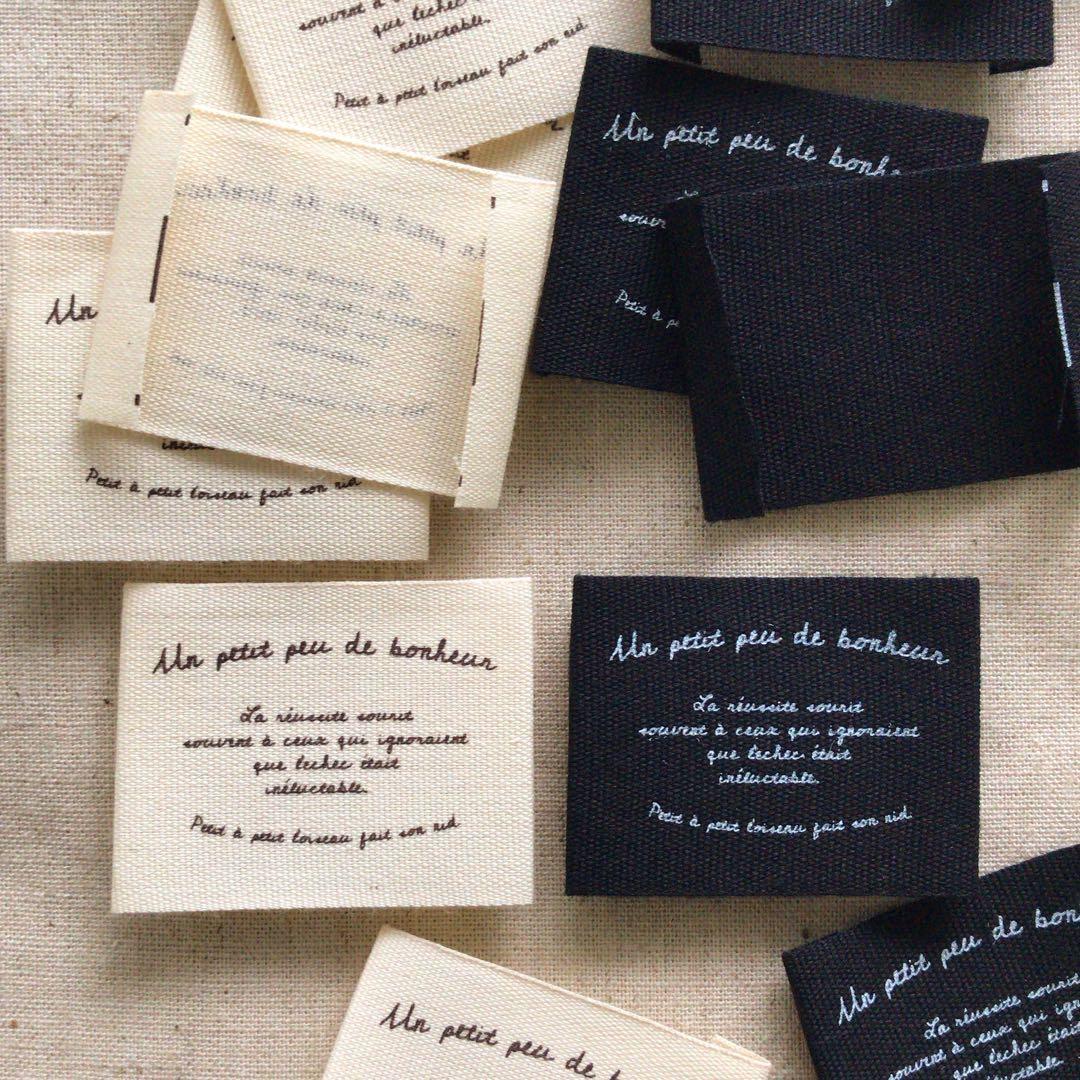 souvent à
que lechec
inéluctable.
Petit à petit loiseau fait son nid.
Un petit peu de bonheu
souv
Petit à pe
Un
Petit à petit loiseau fait son nid
Un petit peu de bonheur
La réussite sourit
souvent à ceux qui ignoraient
que lechec était
inéluctable.
Petit à petit loiseau fait son nid.
Un petit peu de bonheur
La réussite sourit
souvent à ceux qui ignoraient
que lechec était
inéluctable.
Petit à petit loiseau fait son nid.
Un petit peu de
Un petit peu de bon
La réussite sourit
souvent à ceux qui ign
que lechec était
inéluctable.